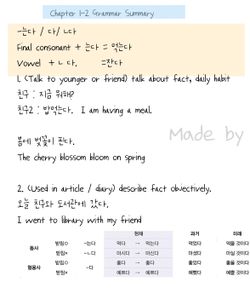 Chapter 1-2 Grammar Summary
-는다 / 다/ ㄴ다
Final consonant + 는다 = 먹는다
Vowel + ㄴ다. =잔다
1. (Talk to younger or friend) talk about fact, daily habit
친구 : 지금 뭐해?
친구2 : 밥먹는다. I am having a meal.
봄에 벚꽃이 핀다.
Made by
The cherry blossom bloom on spring
2. (Used in article / diary) describe fact objectively.
오늘 친구와 도서관에 갔다.
I went to library with my friend
현재 과거 미래
동사 받침O -는다 먹다 → 먹는다 먹었다 먹을 것이다
받침X -ㄴ다 마시다 → 마신다 마셨다 마실 것이다
형용사 받침O -다 좋다 → 좋다 좋았다 좋을 것이다
받침X 예쁘다 → 예쁘다 예뻤다 예쁠 것이다